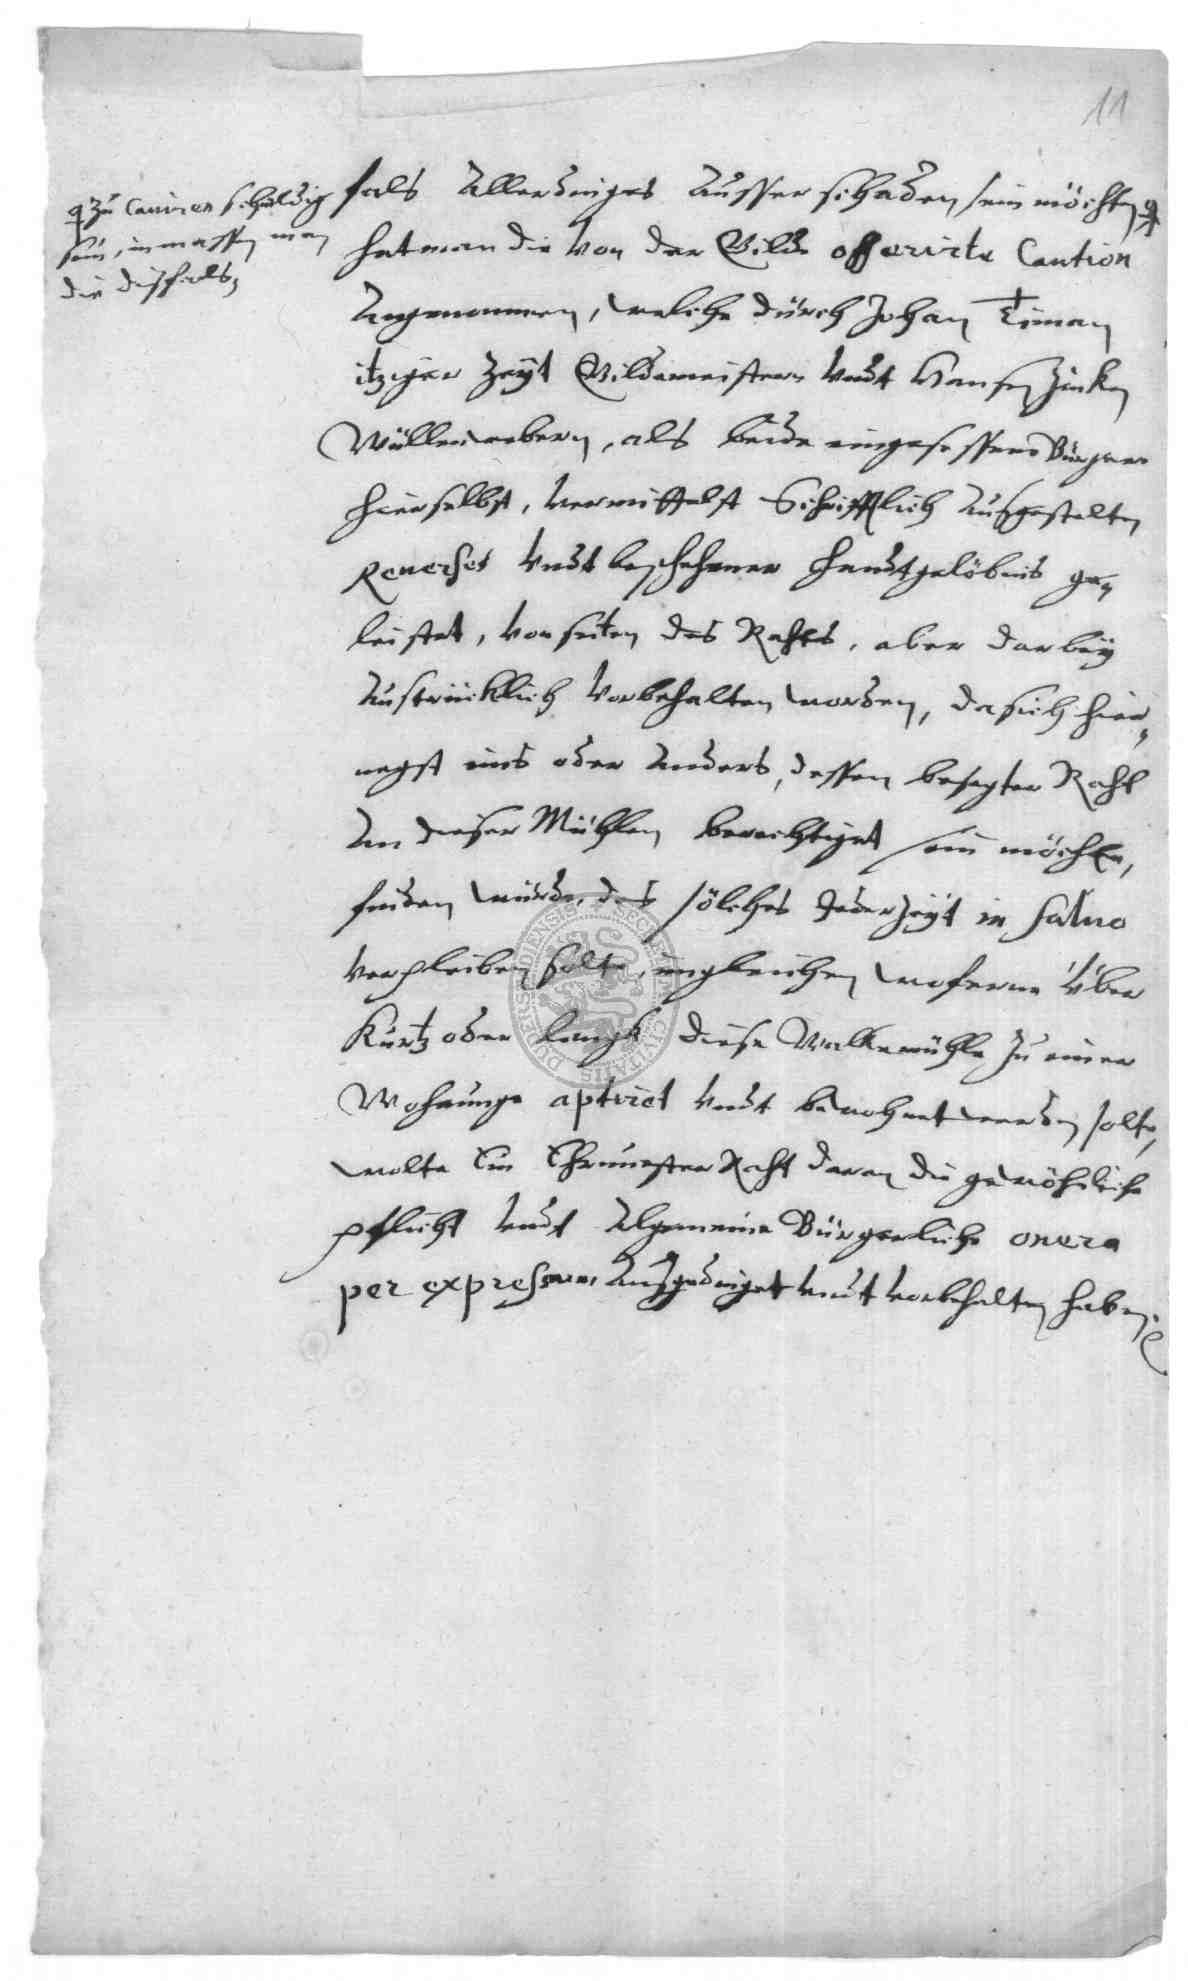 11
zu Caviren schuldig
sein, inmassen man
die dißfals,
fals allerdinges ausser schaden sein möchten
hat man die von der Gilde offerirte Caution
angenommen, welche durch Johan Timan
itziger Zeyt Gildemeistern undt Hansen Zinken
Wüllenwebern, als beide eingesessene Bürger
hierselbst, vermittelst Schrifftlich ausgestalten
Reverses undt beschehener handtgelöbnis ge-
leistet, von seiten des Rahts, aber darbey
austrücklich vorbehalten worden, da sich hier-
negst eins oder anders, dessen besagter Raht
an dieser Mühlen berechtiget sein möchte,
finden würde, das sölches Jederzeyt in salvo
verpleiben solte, ingleichen wofern über
Kurtz oder langk diese Walkemühle zu einer
Wohnunge aptirt undt bewohnet werden solte,
wolte Ein Ehrnvester Raht daran die gewöhnliche
pflicht undt algemeine Bürgerliche onera
per expressum außgedinget undt vorbehalten haben.
DUDERSTADIENSIS SECRETUM CIVITATIS